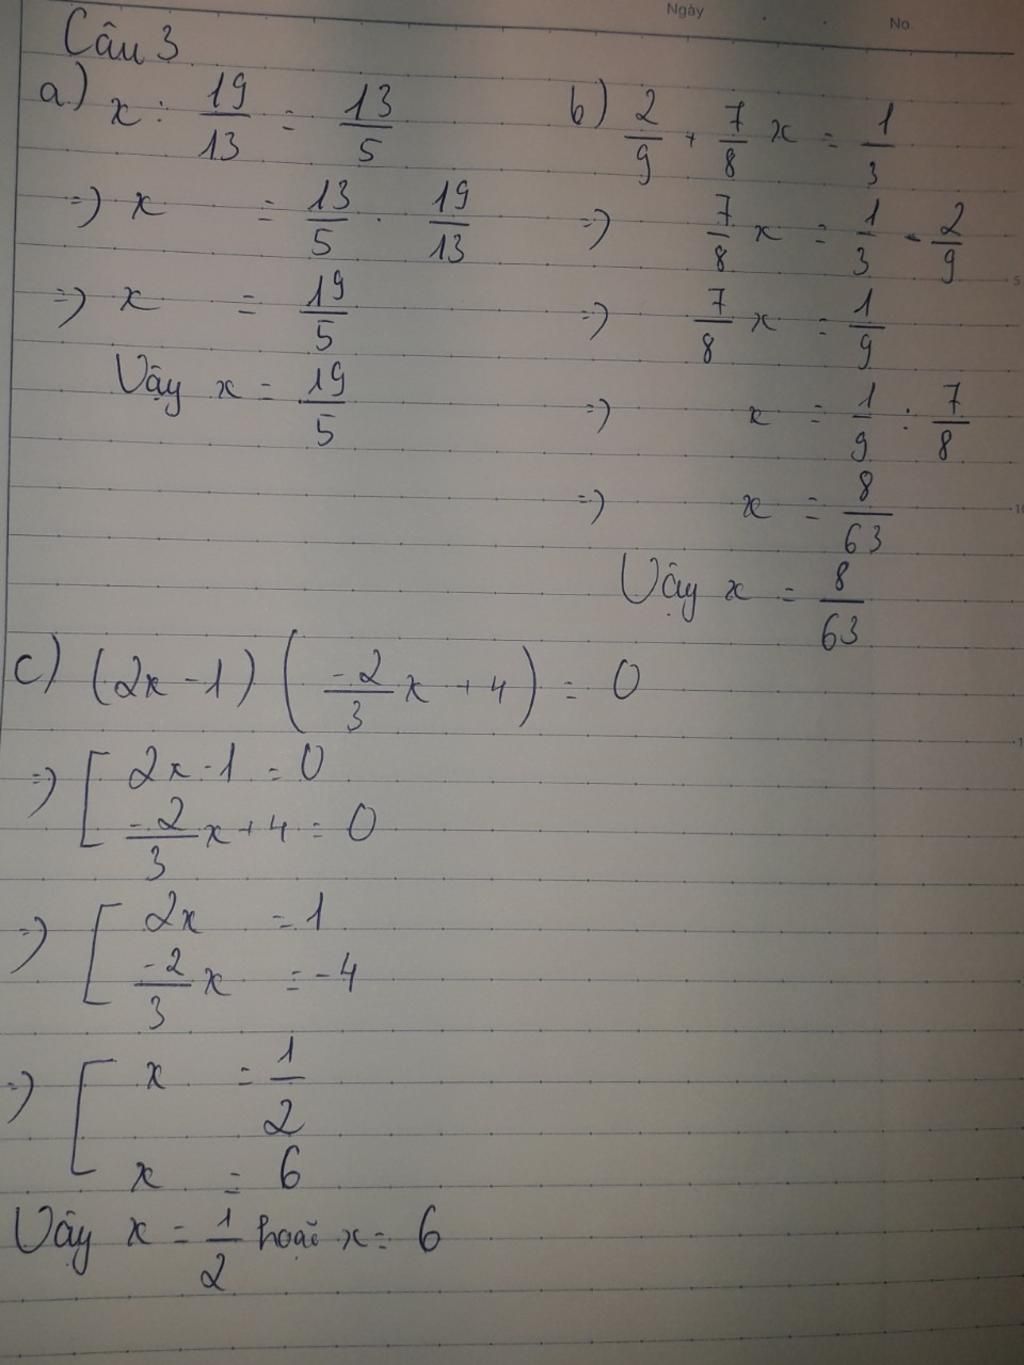 Ngày No.
Câu 3
a) x : 19/13 = 13/5
=> x = 13/5 . 19/13
=> x = 19/5
Vậy x = 19/5
b) 2/9 + 7/8 x = 1/3
=> 7/8 x = 1/3 - 2/9
=> 7/8 x = 1/9
=> x = 1/9 : 7/8
=> x = 8/63
Vậy x = 8/63
c) (2x - 1) (-2/3 x + 4) = 0
=> [ 2x - 1 = 0
-2/3 x + 4 = 0
=> [ 2x = 1
-2/3 x = -4
=> [ x = 1/2
x = 6
Vậy x = 1/2 hoặc x = 6